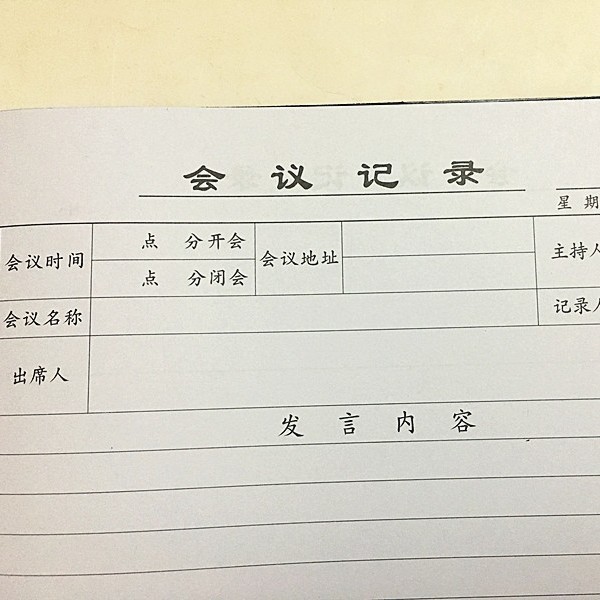 会议记录
星期
会议时间 点 分开会 会议地址 主持人
点 分闭会
会议名称 记录人
出席人
发言内容